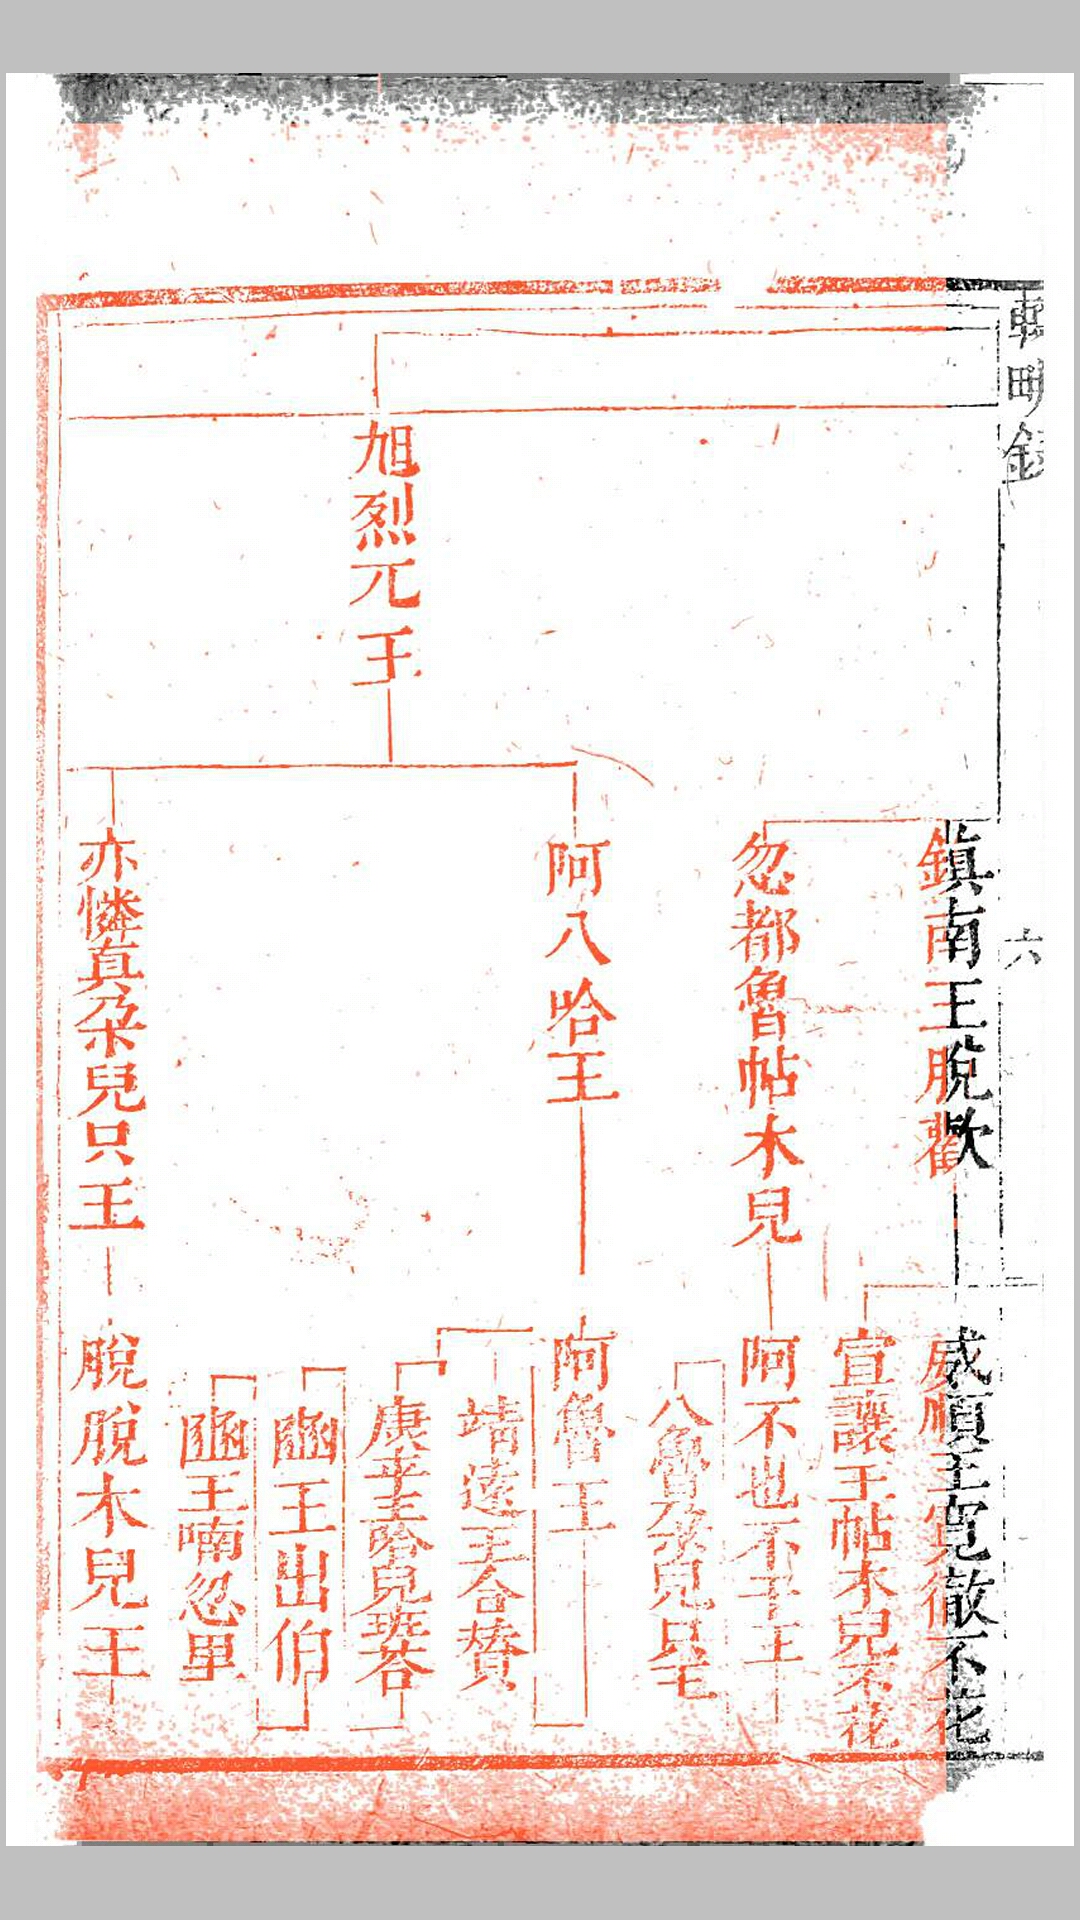 輟畊錄
六
鎮南王脫歡
威順王寬徹不花
宣讓王帖木兒不花
忽都魯帖木兒
阿不也不干王
八魯朶兒
旭烈兀王
阿八哈王
阿魯王
靖遠王合贊
庚王哈兒班荅
豳王出伯
豳王喃忽里
亦憐真朶兒只王
脫脫木兒王